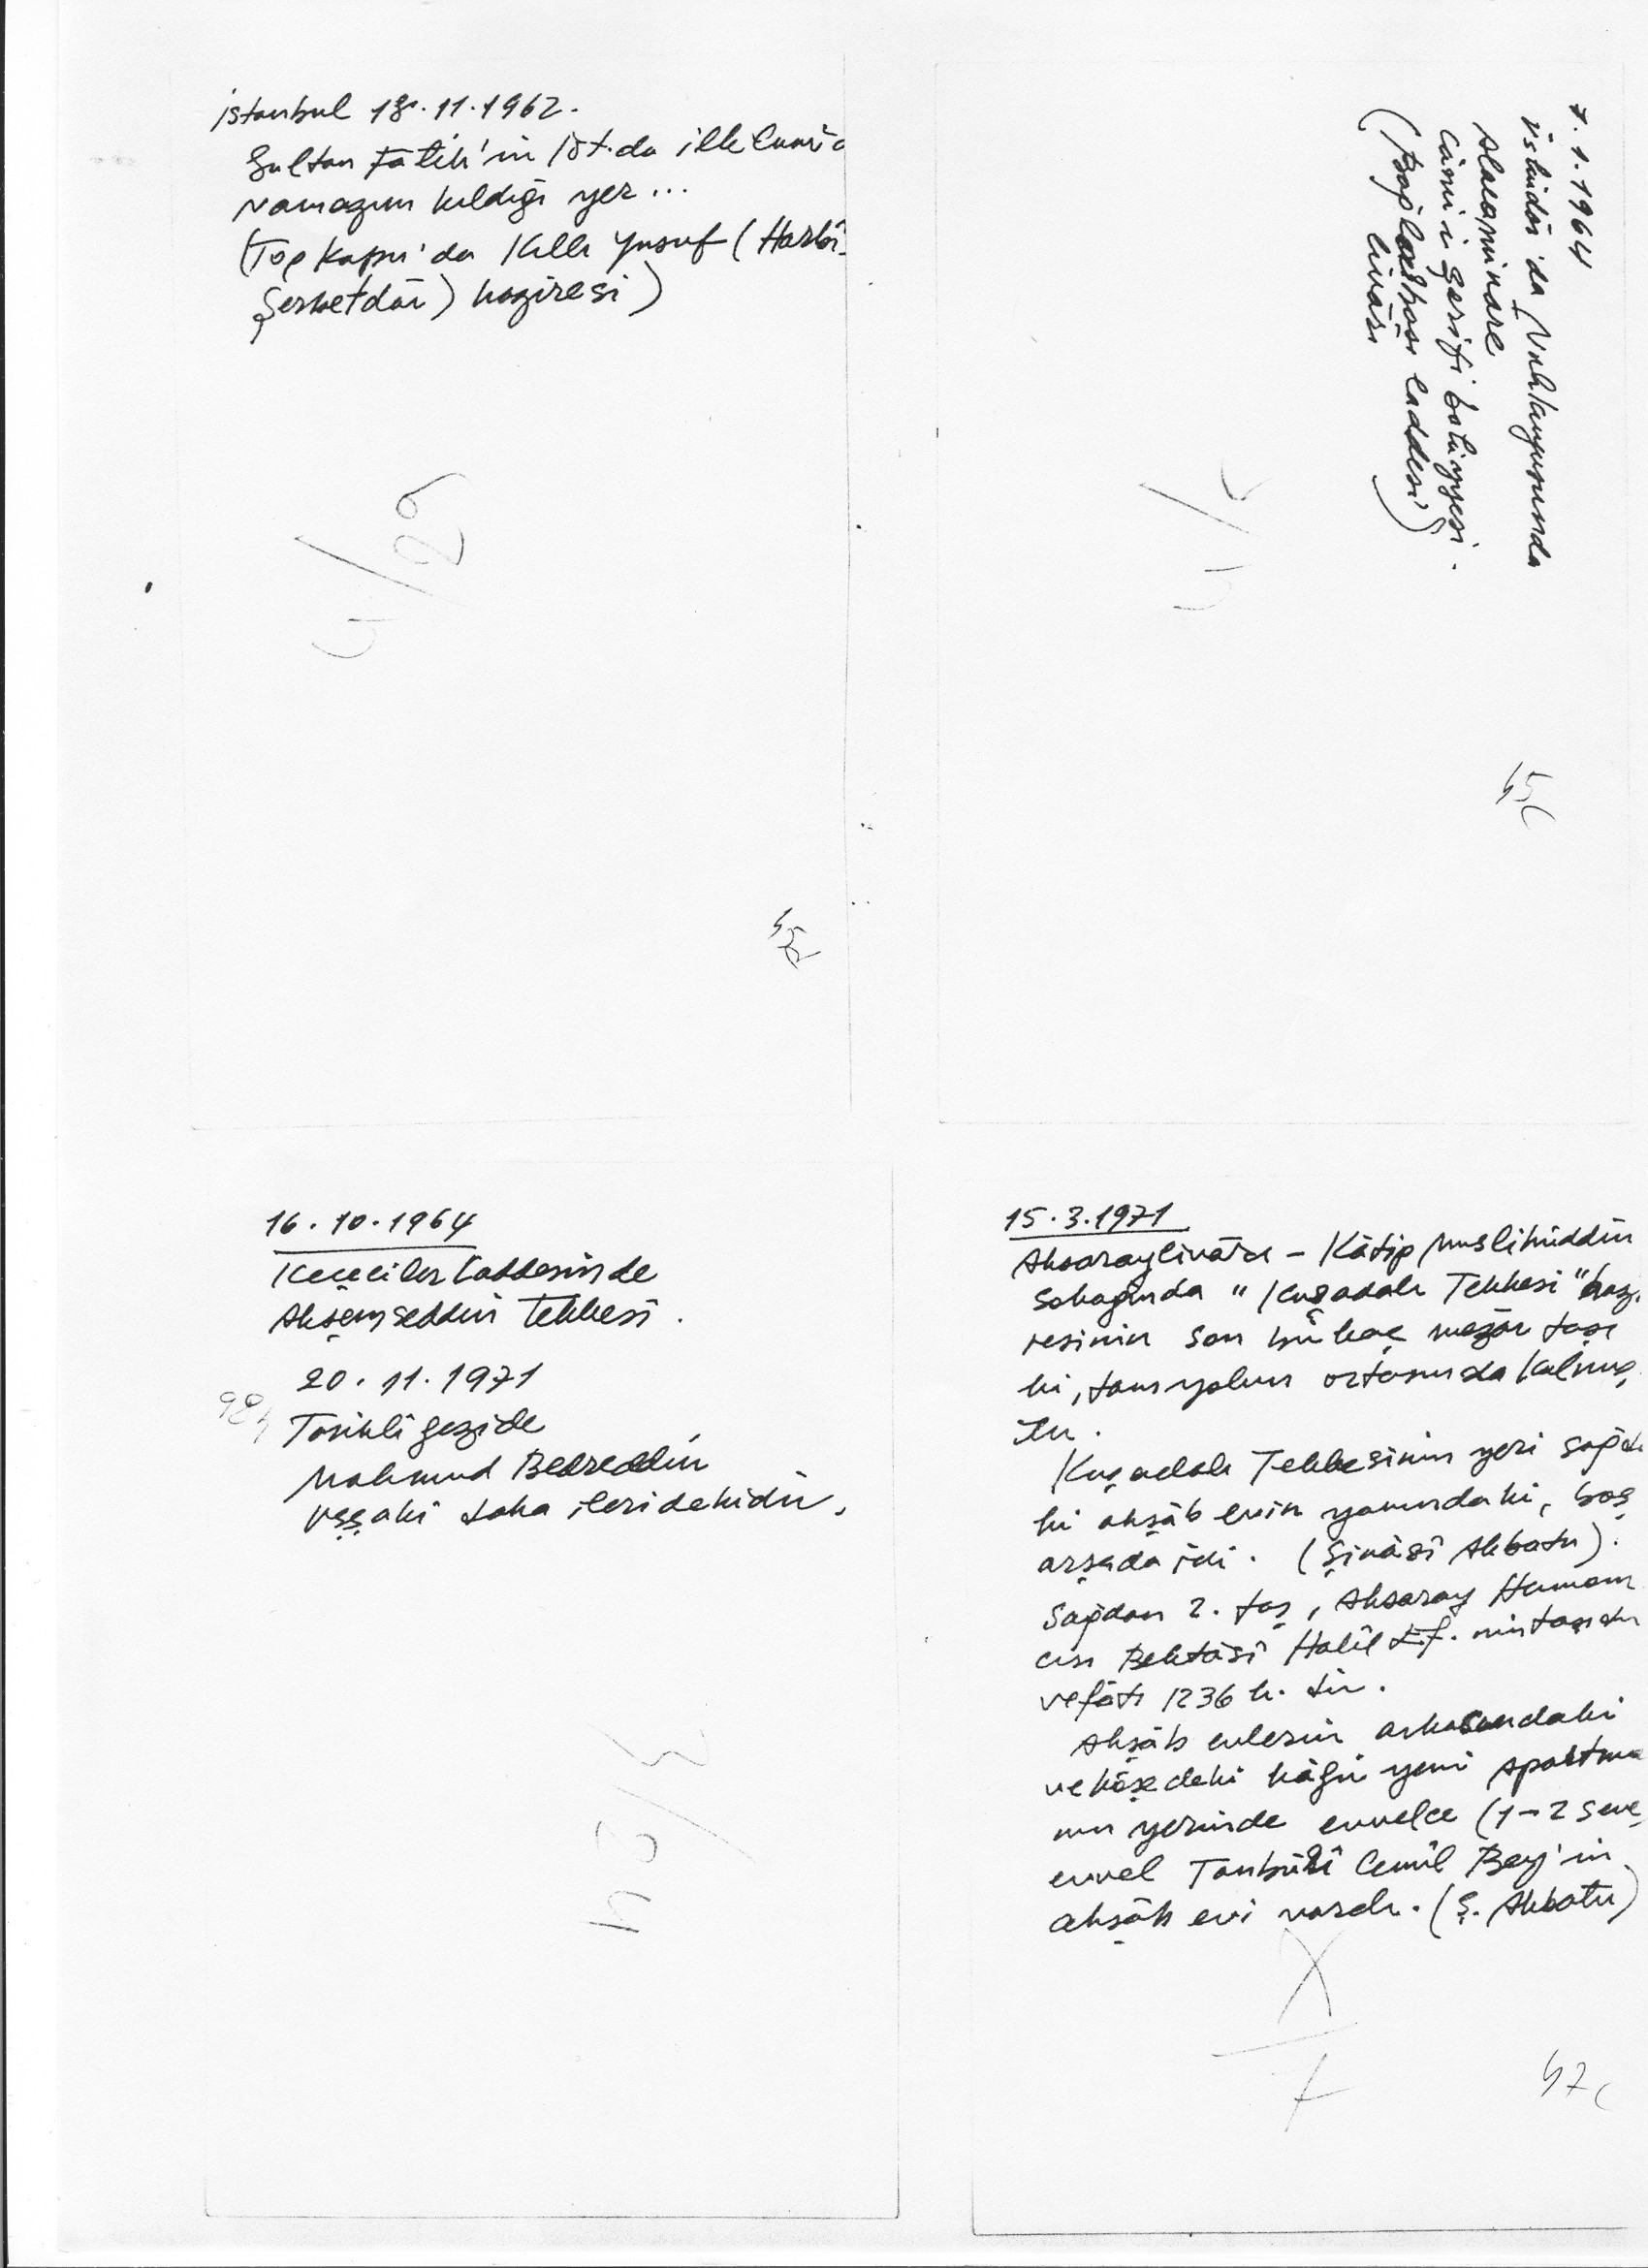 istanbul 18.11.1962.
Sultan Fatih'in İst.da ilk Cum'a
Namazını kıldığı yer...
(Topkapı'da Kıllı Yusuf (Harbî-
Şerbetdâr) haziresi)
7.1.1964
Üsküdar'da (Nuhkuyusunda
Alacaminare
Câmi-i Şerifi bakiyyesi.
(Bağlarbaşı caddesi)
civârı
455
45
16.10.1964
Keçeciler Caddesinde
Akşemseddin Tekkesi.
20.11.1971
Tarihli gezide
Mahmud Bedreddin
Uşşaki daha ileridekidir.
15.3.1971
Aksaray civârı - Kâtip Muslihiddin
Sokağında "Kuşadalı Tekkesi" hazi
resinin son bir kaç mezar taşı
ki, tam yolun ortasında kalmış
tır.
Kuşadalı Tekkesinin yeri sağda
ki ahşâb evin yanındaki, boş
arsada idi. (Şinâsî Akbatu).
Sağdan 2. taş, Aksaray Hamam
cısı Bektâşî Halîl Ef. nin taşıdır
vefâtı 1236 h. dir.
Ahşâb evlerin arkasındaki
ve köşedeki kâgir yeni apartma
nın yerinde evvelce (1-2 sene
evvel Tanbûrî Cemîl Bey'in
ahşâb evi vardı. (Ş. Akbatu)
47